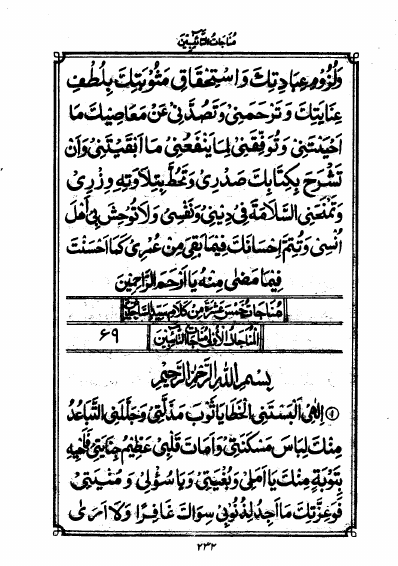 مناجات التائبین
وَلُزُومِ عِبَادَتِكَ وَاسْتِحْقَاقِ مَثُوبَتِكَ بِلُطْفِ
عِنَايَتِكَ وَتَرْحَمَنِىْ وَتَصُدَّنِىْ عَنْ مَعَاصِيْكَ مَا
اَحْيَيْتَنِىْ وَتُوَفِّقَنِىْ لِمَا يَنْفَعُنِىْ مَا اَبْقَيْتَنِىْ وَاَنْ
تَشْرَحَ بِكِتَابِكَ صَدْرِىْ وَتَحُطَّ بِتِلَاوَتِهٖ وِزْرِىْ
وَتَمْنَحَنِىَ السَّلَامَةَ فِىْ دِيْنِىْ وَنَفْسِىْ وَلَا تُوْحِشَ بِىْ اَهْلَ
اُنْسِىْ وَتُتِمَّ اِحْسَانَكَ فِيْمَا بَقِىَ مِنْ عُمْرِىْ كَمَا اَحْسَنْتَ
فِيْمَا مَضٰى مِنْهُ يَا اَرْحَمَ الرَّاحِمِيْنَ
مناجات خمس عشرة من كلام سيد الساجدين
المناجات الاولى مناجات التائبين
۶۹
بِسْمِ اللهِ الرَّحْمٰنِ الرَّحِيْمِ
① اِلٰهِىْ اَلْبَسَتْنِى الْخَطَايَا ثَوْبَ مَذَلَّتِىْ وَجَلَّلَنِى التَّبَاعُدُ
مِنْكَ لِبَاسَ مَسْكَنَتِىْ وَاَمَاتَ قَلْبِىْ عَظِيْمُ جِنَايَتِىْ فَاَحْيِهٖ
بِتَوْبَةٍ مِنْكَ يَا اَمَلِىْ وَبُغْيَتِىْ وَيَا سُؤْلِىْ وَمُنْيَتِىْ
فَوَعِزَّتِكَ مَا اَجِدُ لِذُنُوْبِىْ سِوَاكَ غَافِرًا وَلَا اَرٰى
۲۳۲